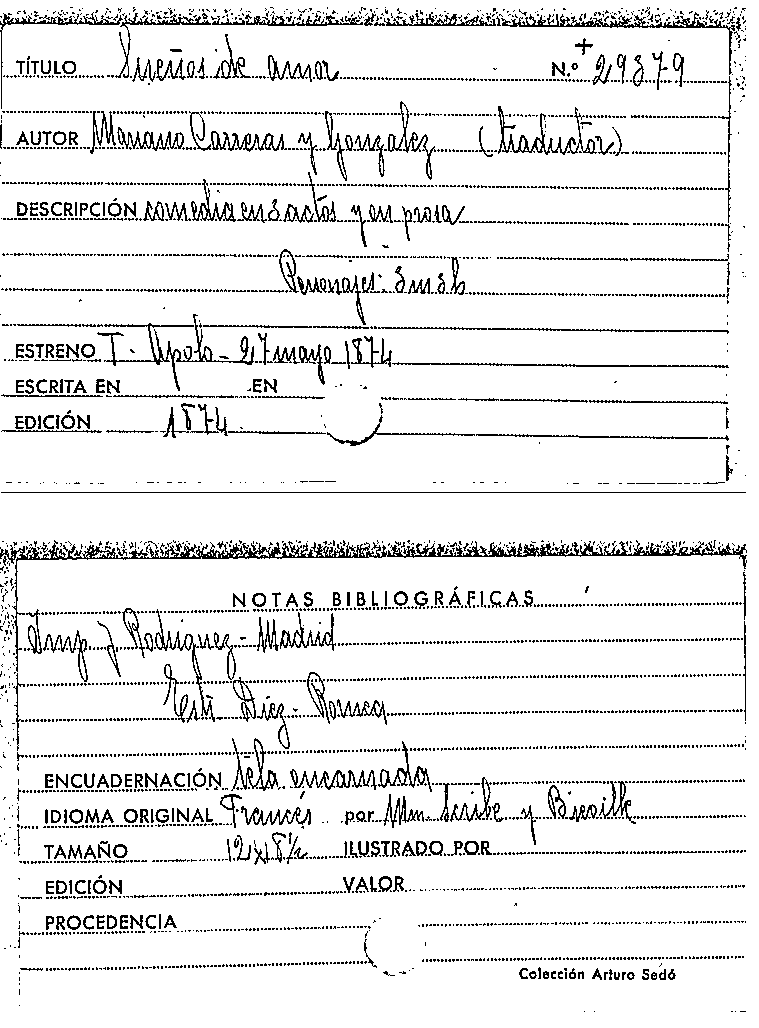 TÍTULO Sueños de amor N.º + 29379
AUTOR Mariano Carreras y Gonzalez (traductor)
DESCRIPCIÓN comedia en 3 actos y en prosa
Personajes: 3 m 3 h
ESTRENO T. Apolo - 27 mayo 1874
ESCRITA EN EN
EDICIÓN 1874
NOTAS BIBLIOGRÁFICAS
Imp J Rodriguez - Madrid
Diez - Romea
ENCUADERNACIÓN tela encarnada
IDIOMA ORIGINAL Francés por Mm. Scribe y
TAMAÑO 12x18½ ILUSTRADO POR
EDICIÓN VALOR
PROCEDENCIA
Colección Arturo Sedó